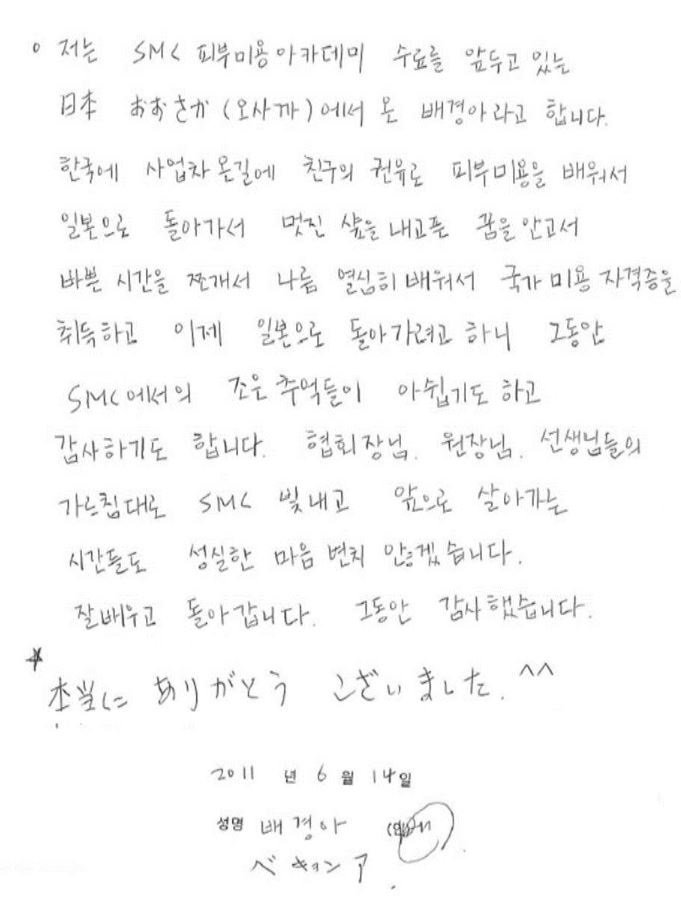 저는 SMC 피부미용아카데미 수료를 앞두고 있는
日本 おおさか (오사까)에서 온 배경아라고 합니다.
한국에 사업차 온길에 친구의 권유로 피부미용을 배워서
일본으로 돌아가서 멋진 샾을 내고픈 꿈을 안고서
바쁜 시간을 쪼개서 나름 열심히 배워서 국가 미용 자격증을
취득하고 이제 일본으로 돌아가려고 하니 그동안
SMC에서의 조은 추억들이 아쉽기도 하고
감사하기도 합니다. 협회장님. 원장님. 선생님들의
가르침대로 SMC 빛내고 앞으로 살아가는
시간들도 성실한 마음 변치 않겠습니다.
잘배우고 돌아갑니다. 그동안 감사했습니다.
本当に ありがとう ございました. ^^
2011 년 6 월 14일
성명 배경아 (인)
ベ キョン ア.